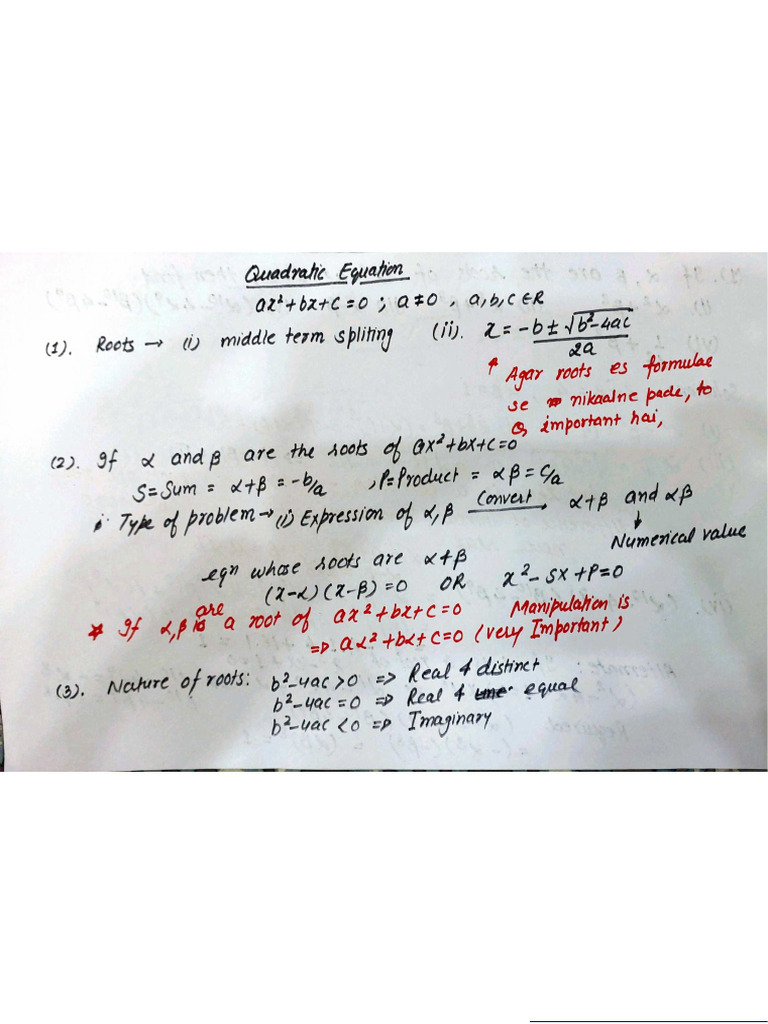 Quadratic Equation
ax²+bx+c=0 ; a≠0 , a,b,c ∈R
(1). Roots → (i) middle term spliting (ii). x = -b ± √b²-4ac / 2a
↑ Agar roots es formulae
se nikaalne pade, to
Q important hai,
(2). If α and β are the roots of ax²+bx+c=0
S=Sum = α+β = -b/a , P=Product = αβ = c/a
Type of problem → (i) Expression of α,β Convert → α+β and αβ
↓
Numerical value
eqⁿ whose roots are α+β
(x-α)(x-β)=0 OR x²-Sx+P=0
* If α,β are a root of ax²+bx+c=0 Manipulation is
⇒ aα²+bα+c=0 (very Important)
(3). Nature of roots: b²-4ac>0 => Real & distinct
b²-4ac=0 => Real & equal
b²-4ac<0 => Imaginary